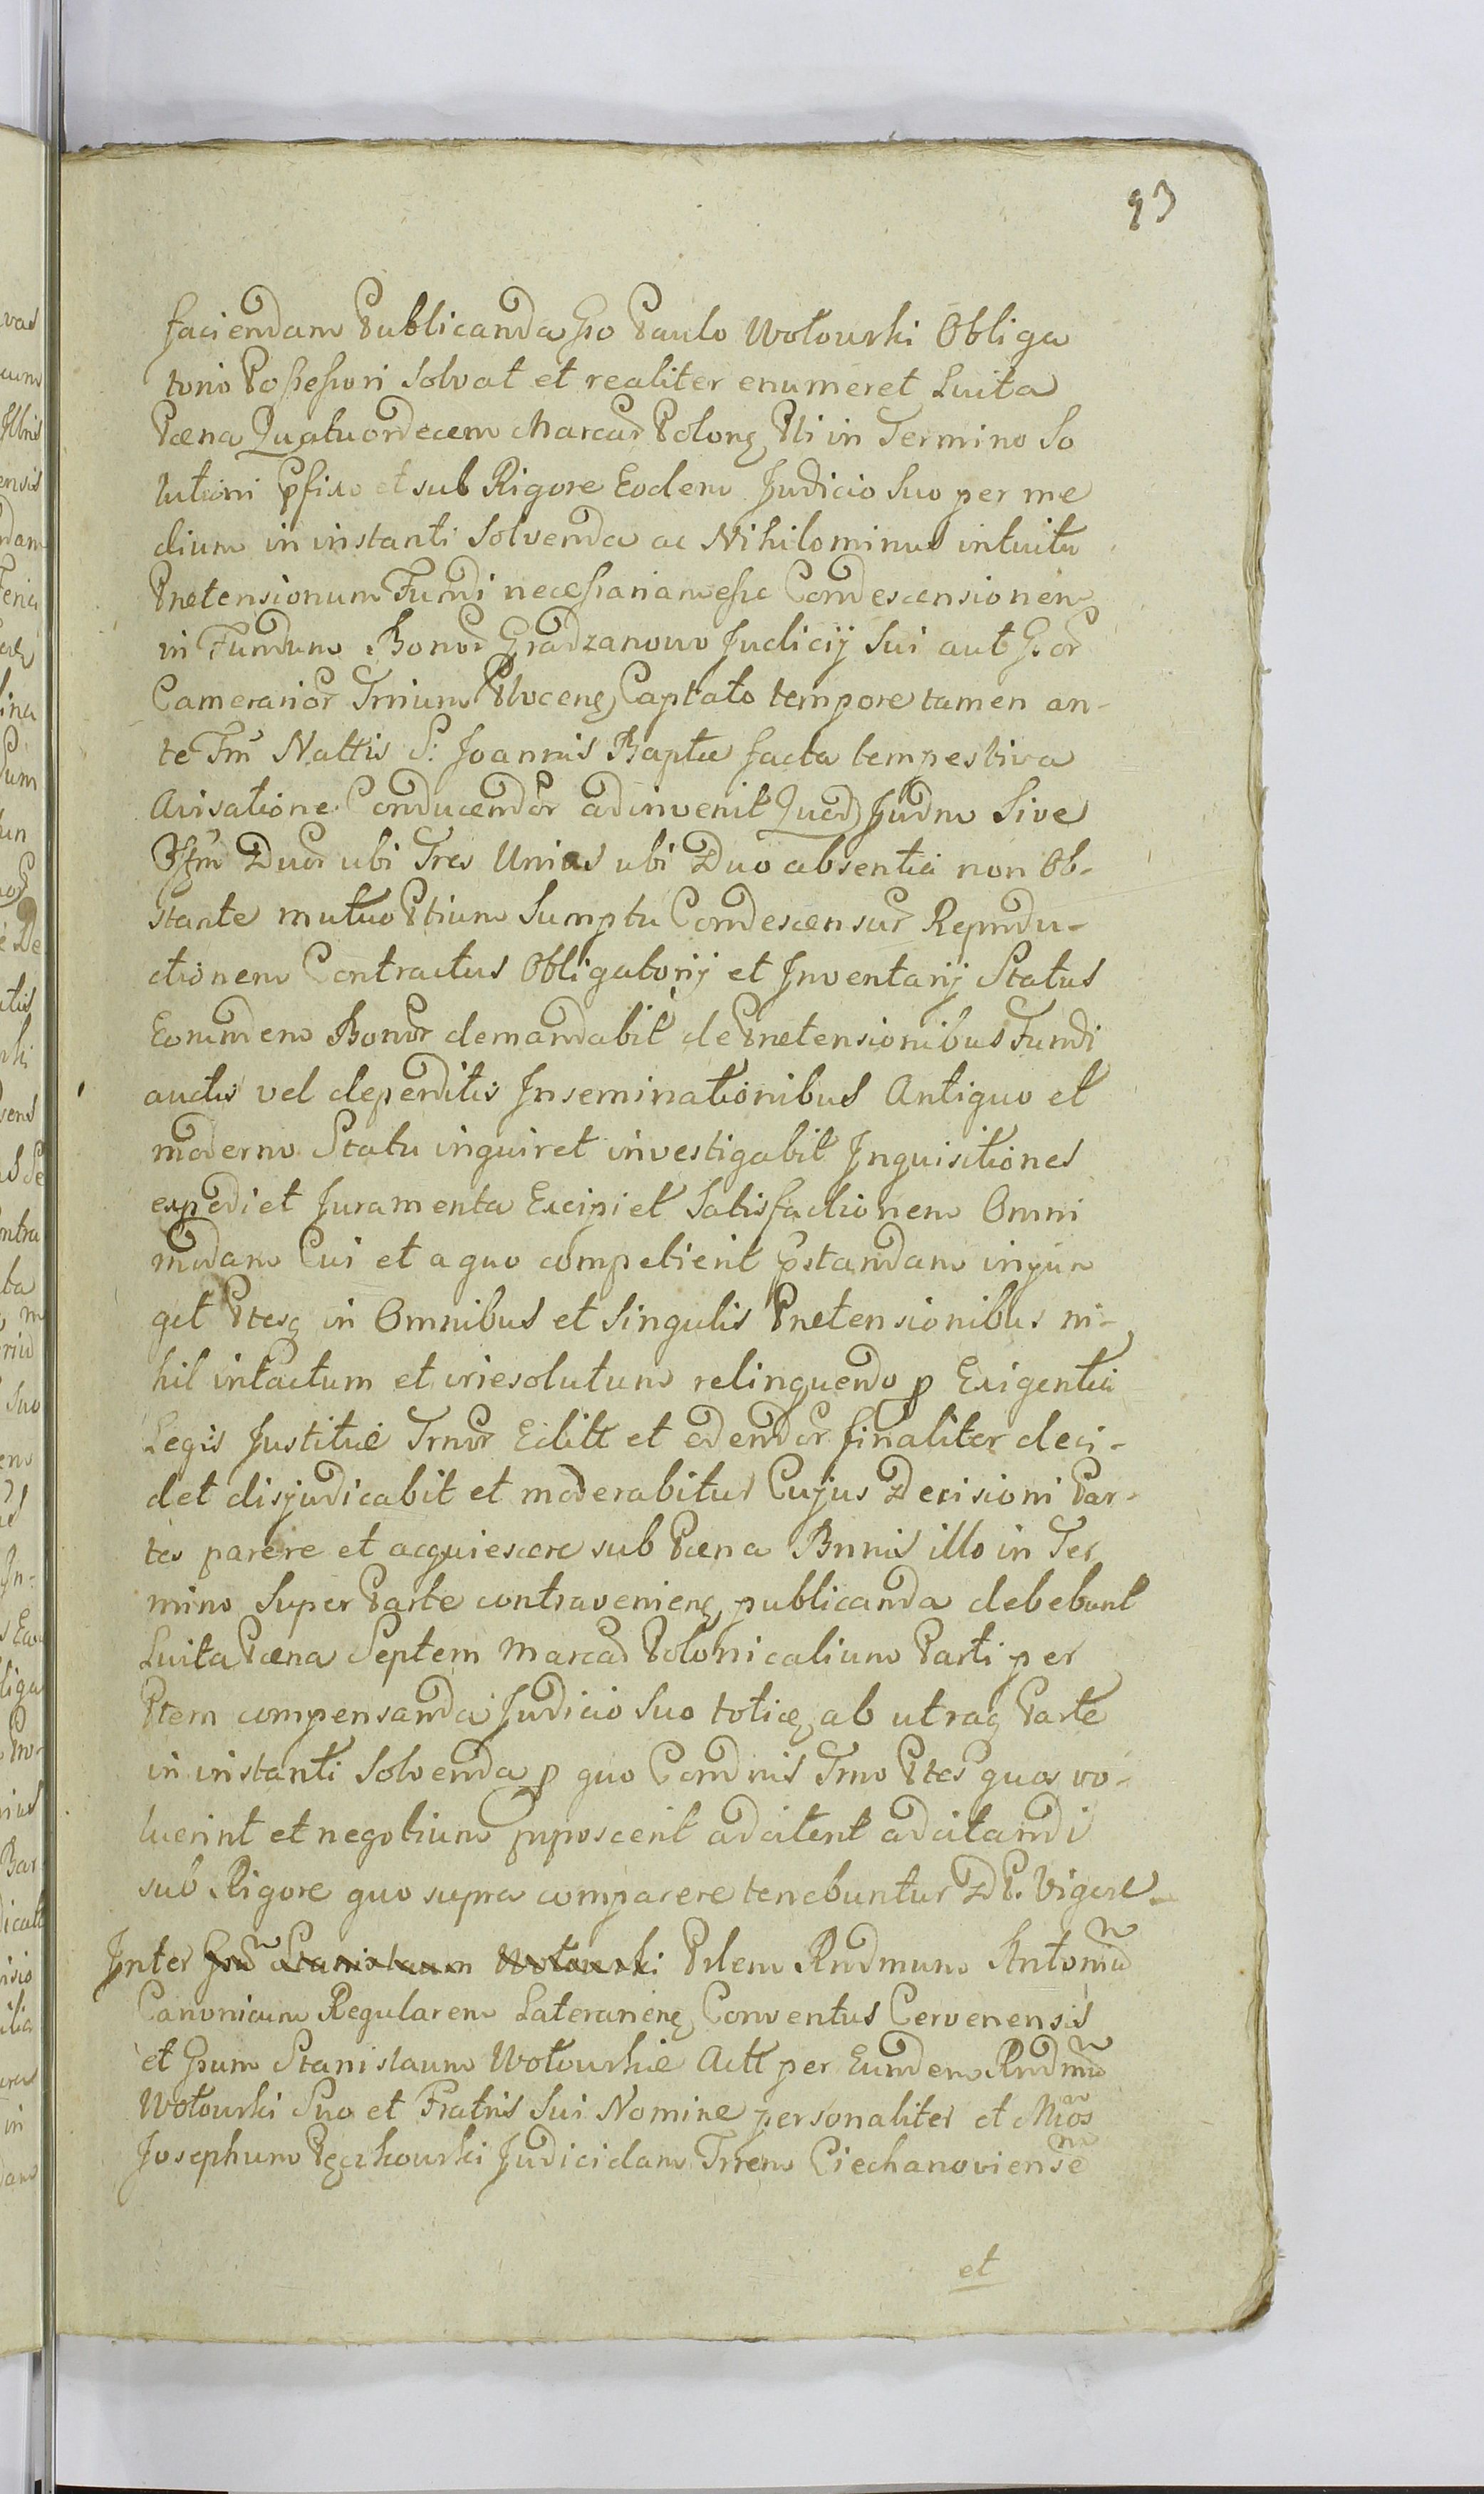 93
faciendam Publicanda Gso Paulo Wołowski Obliga
torio Possessori Solvat et realiter enumeret Luita
Pœna Quatuordecem Marcar Polong Pti in Termino So
lutioni pfixo et sub Rigore Eodem Judicio Suo per me
dium in instanti Solvenda ac Nihilominus intuitu
Prætensionum Fundi necessariam esse Condescensionem
in Fundum Bonor Gradzanowo Judicij Sui aut Gsor
Camerarior Trrium Plocens Captato tempore tamen an-
te Fm̃ Nattis S: Joannis Baptæ facta tempestiva
Avisatione Conducendor adinvenit Quod Judm Sive
Offm̃ Duor ubi Tres Unius ubi Duo absentia non Ob-
stante mutuo Ptium Sumptu Condescensur Reprodu-
ctionem Contractus Obligatorij et Inventarij Status
Eorumdem Bonor demandabit de Prætensionibus Fundi
auctis vel deperditis Inseminationibus Antiquo et
moderno Statu inquiret investigabit Inquisitiones
expediet Juramenta Excipiet Satisfactionem Omni
modam Cui et a quo competierit pstandam injun
get Ptesq in Omnibus et Singulis Prætensionibus ni-
hil intactum et irresolutum relinquendo p Exigentia
Legis Justitiæ Trnor Editt et edendor finaliter deci-
det disjudicabit et moderabitur Cujus Decisioni Par-
tes parere et acquiescere sub Pœna Bnnis illo in Ter
mino Super Parte contraveniens publicanda debebunt
Luita Pœna Septem Marcar Polonicalium Parti per
Ptem compensanda Judicio Suo toties ab utraq Parte
in instanti Solvenda p quo Condnis Trno Ptes quas vo-
luerint et negotium pposcerit adcitent adcitandi
sub Rigore quo supra comparere tenebuntur D P. Vigore
Inter Gsum Stanislaum Wołowski Prlem Rndmum Antoniũ
Canonicum Regularem Lateranens Conventus Cervenensis
et Gsum Stanislaum Wołowskie Actt per Eundem Rndmũ
Wołowski Suo et Fratris Sui Nomine personaliter et Mlos
Josephum Pęczkowski Judicidam Trrem Ciechanoviensẽ
et